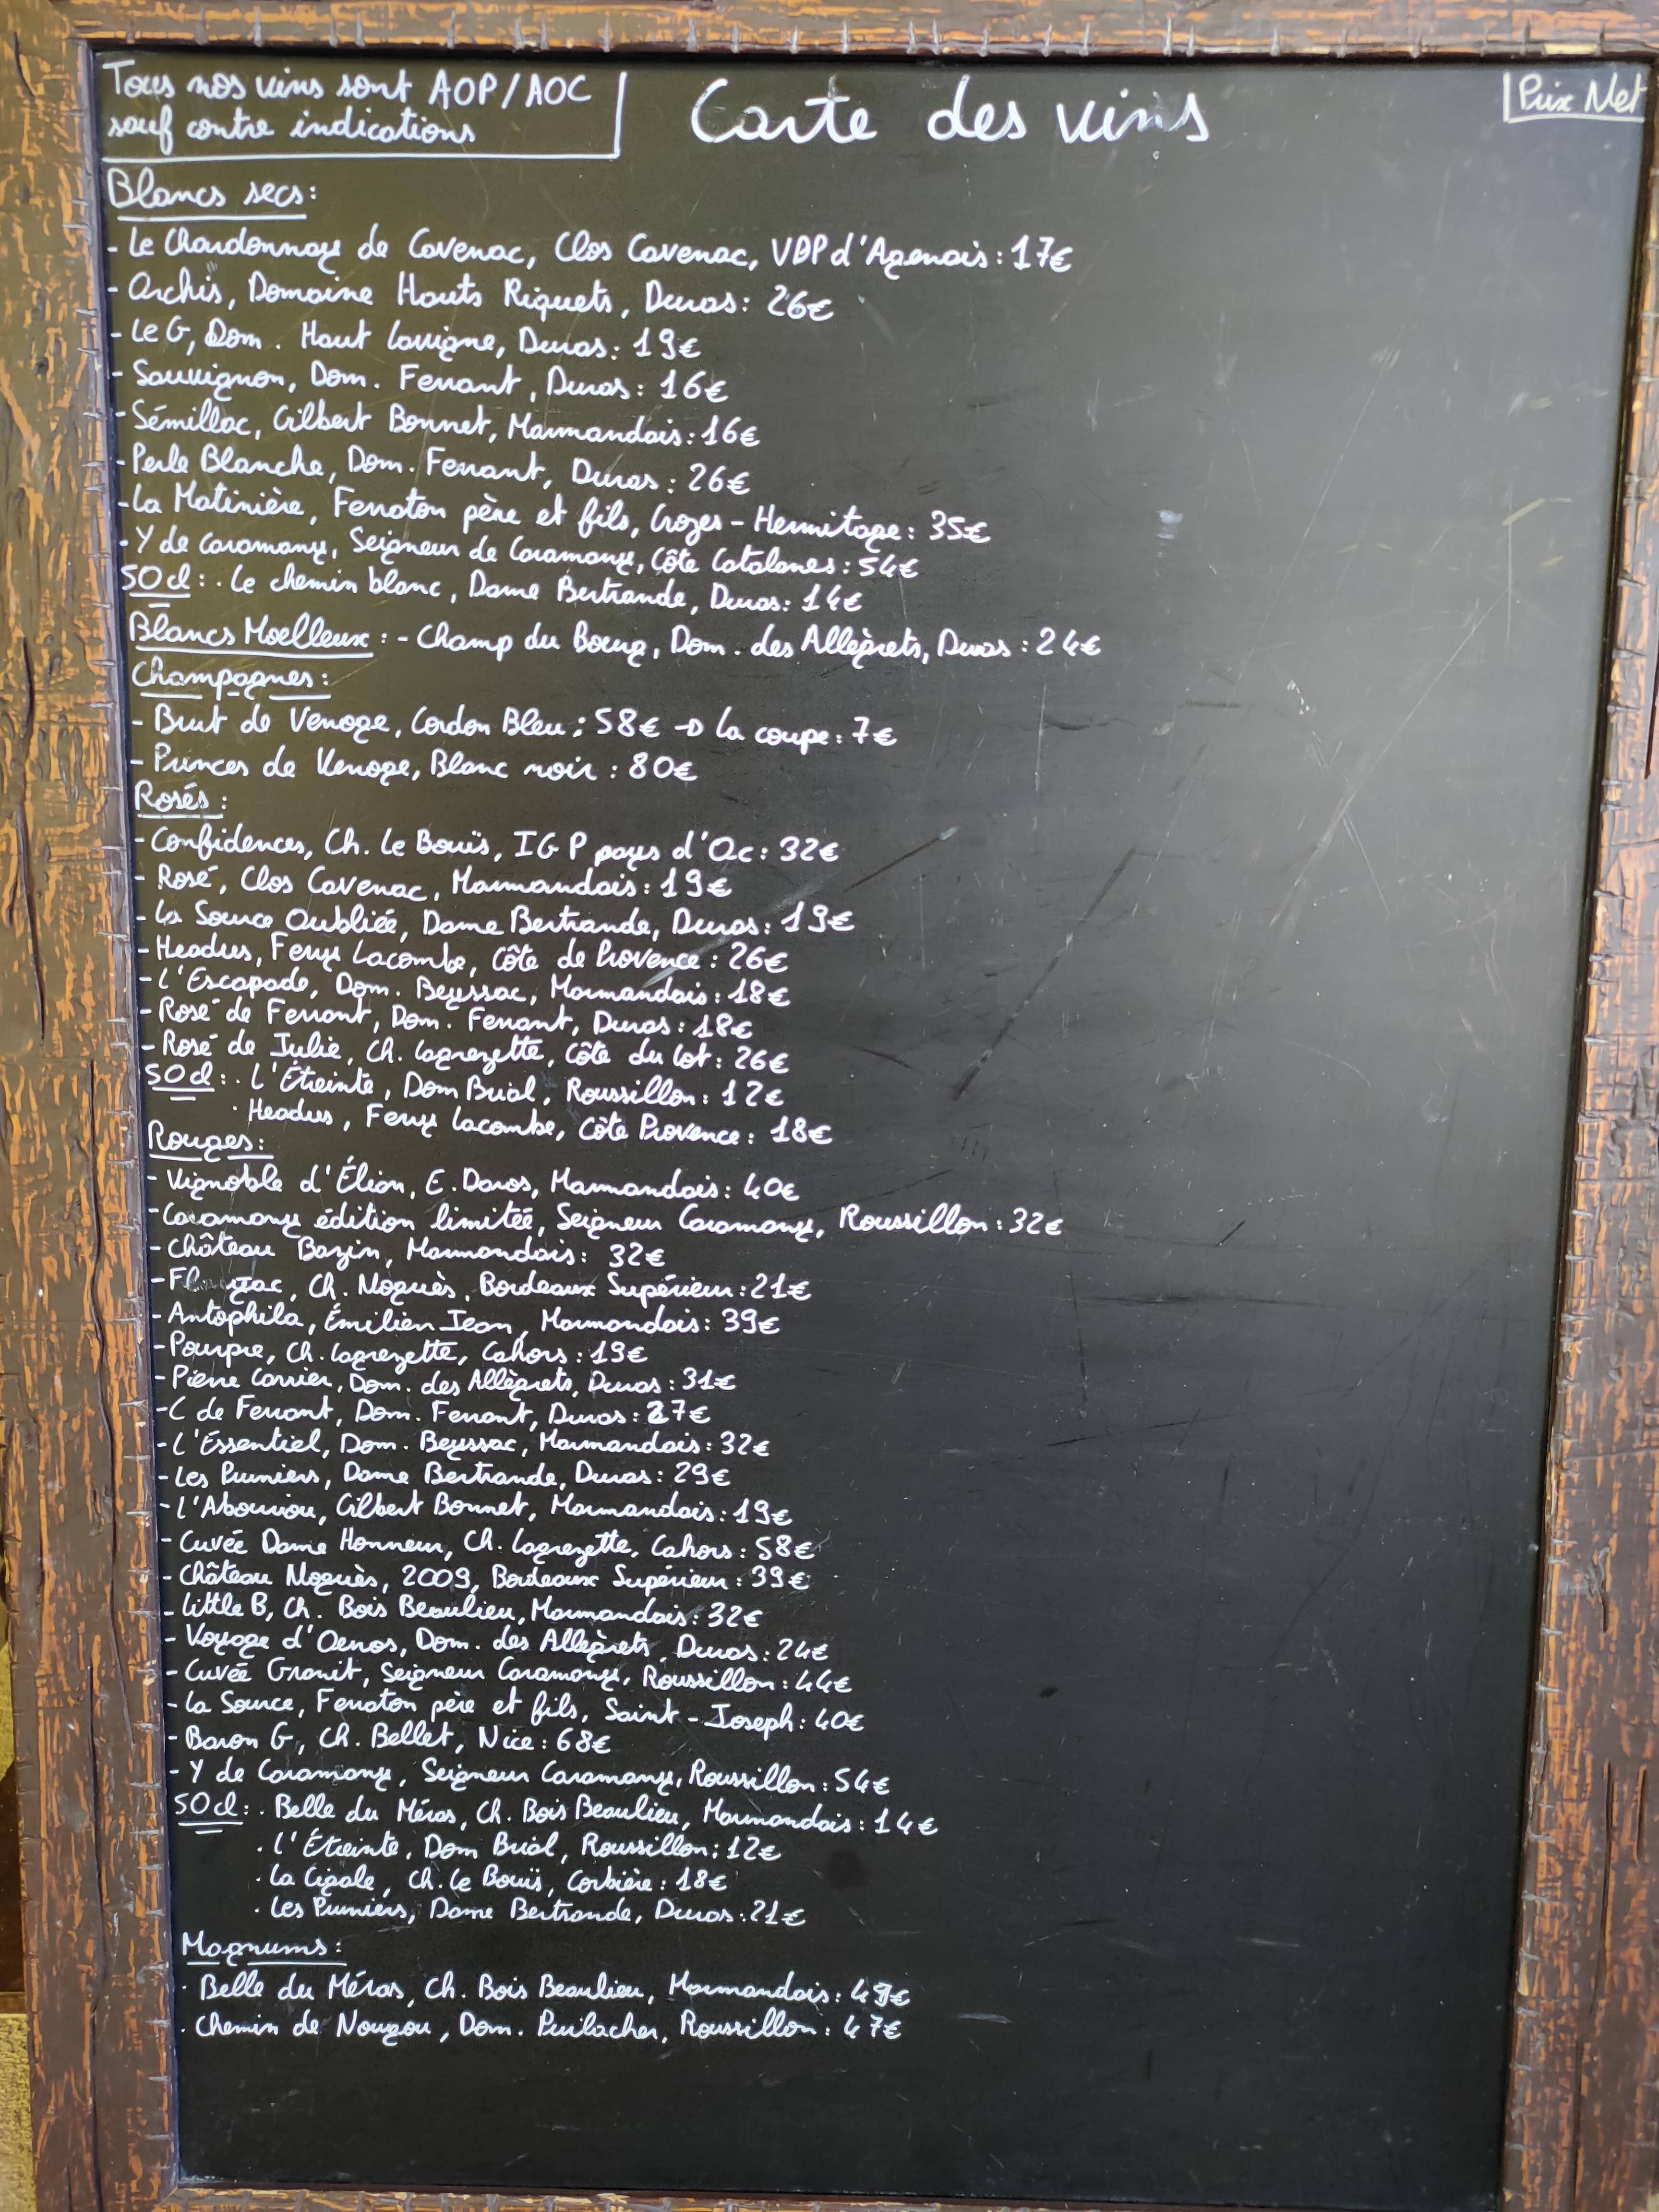 Tous nos vins sont AOP/AOC
sauf contre indications
Carte des vins
Prix Net
Blancs secs:
- Le Chardonnay de Cavenac, Clos Cavenac, VDP d'Agenais: 17€
- Orchis, Domaine Hauts Riquets, Duras: 26€
- Le G, Dom. Haut Lavigne, Duras: 19€
- Sauvignon, Dom. Ferrant, Duras: 16€
- Sémillac, Gilbert Bonnet, Marmandais: 16€
- Perle Blanche, Dom. Ferrant, Duras: 26€
- La Matinière, Ferraton père et fils, Crozes-Hermitage: 35€
- Y de Caramany, Seigneur de Caramany, Côte Catalanes: 54€
50cl: . Le chemin blanc, Dame Bertrande, Duras: 14€
Blancs Moelleux: - Champ du Bourg, Dom. des Allègrets, Duras: 24€
Champagnes:
- Brut de Venoge, Cordon Bleu: 58€ → La coupe: 7€
- Princes de Venoge, Blanc noir: 80€
Rosés:
- Confidences, Ch. Le Bouïs, IGP pays d'Oc: 32€
- Rosé, Clos Cavenac, Marmandais: 19€
- La Source Oubliée, Dame Bertrande, Duras: 19€
- Headus, Ferry Lacombe, Côte de Provence: 26€
- L'Escapade, Dom. Beyssac, Marmandais: 18€
- Rosé de Ferrant, Dom. Ferrant, Duras: 18€
- Rosé de Julie, Ch. Lagrezette, Côte du Lot: 26€
50cl: . L'Étreinte, Dom Brial, Roussillon: 12€
. Headus, Ferry Lacombe, Côte Provence: 18€
Rouges:
- Vignoble d'Élian, E. Daros, Marmandais: 40€
- Caramany édition limitée, Seigneur Caramany, Roussillon: 32€
- Château Bazin, Marmandais: 32€
- Ch. Noguès, Bordeaux Supérieur: 21€
- Antophila, Émilien Jean, Marmandais: 39€
- Pourpre, Ch. Lagrezette, Cahors: 19€
- Pierre Carrier, Dom. des Allègrets, Duras: 31€
- C de Ferrant, Dom. Ferrant, Duras: 27€
- L'Essentiel, Dom. Beyssac, Marmandais: 32€
- Les Pruniers, Dame Bertrande, Duras: 29€
- L'Abouriou, Gilbert Bonnet, Marmandais: 19€
- Cuvée Dame Honneur, Ch. Lagrezette, Cahors: 58€
- Château Noguès, 2009, Bordeaux Supérieur: 39€
- Little B, Ch. Bois Beaulieu, Marmandais: 32€
- Voyage d'Oenos, Dom. des Allègrets, Duras: 24€
- Cuvée Granit, Seigneur Caramany, Roussillon: 44€
- La Source, Ferraton père et fils, Saint-Joseph: 40€
- Baron G, Ch. Bellet, Nice: 68€
- Y de Caramany, Seigneur Caramany, Roussillon: 54€
50cl: . Belle du Méras, Ch. Bois Beaulieu, Marmandais: 14€
. L'Étreinte, Dom Brial, Roussillon: 12€
. La Cigale, Ch. Le Bouïs, Corbière: 18€
. Les Pruniers, Dame Bertrande, Duras: 21€
Magnums:
. Belle du Méras, Ch. Bois Beaulieu, Marmandais: 49€
. Chemin de Nougou, Dom. Puilacher, Roussillon: 47€